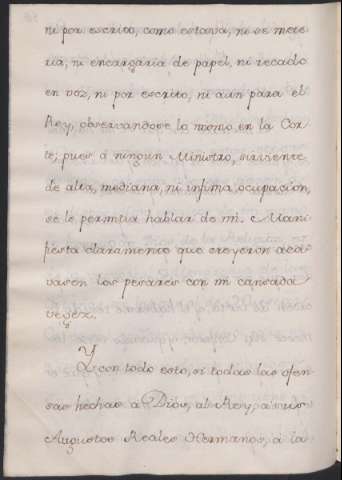 ni por escrito, como estava, ni se mete
ria, ni encargaria de papel, ni recado
en voz, ni por escrito, ni aun para el
Rey, observandose lo mismo en la Cor
te; pues á ningun Ministro, sirviente
de alta, mediana, ni infima ocupacion,
se le permitia hablar de mi. Mani
fiesta claramente que creyeron aca
vasen los pesares con mi cansada
vegez.
Y con todo esto, si todas las ofen
sas hechas á Dios, al Rey, a sus
Augustos Reales Hermanos, á la